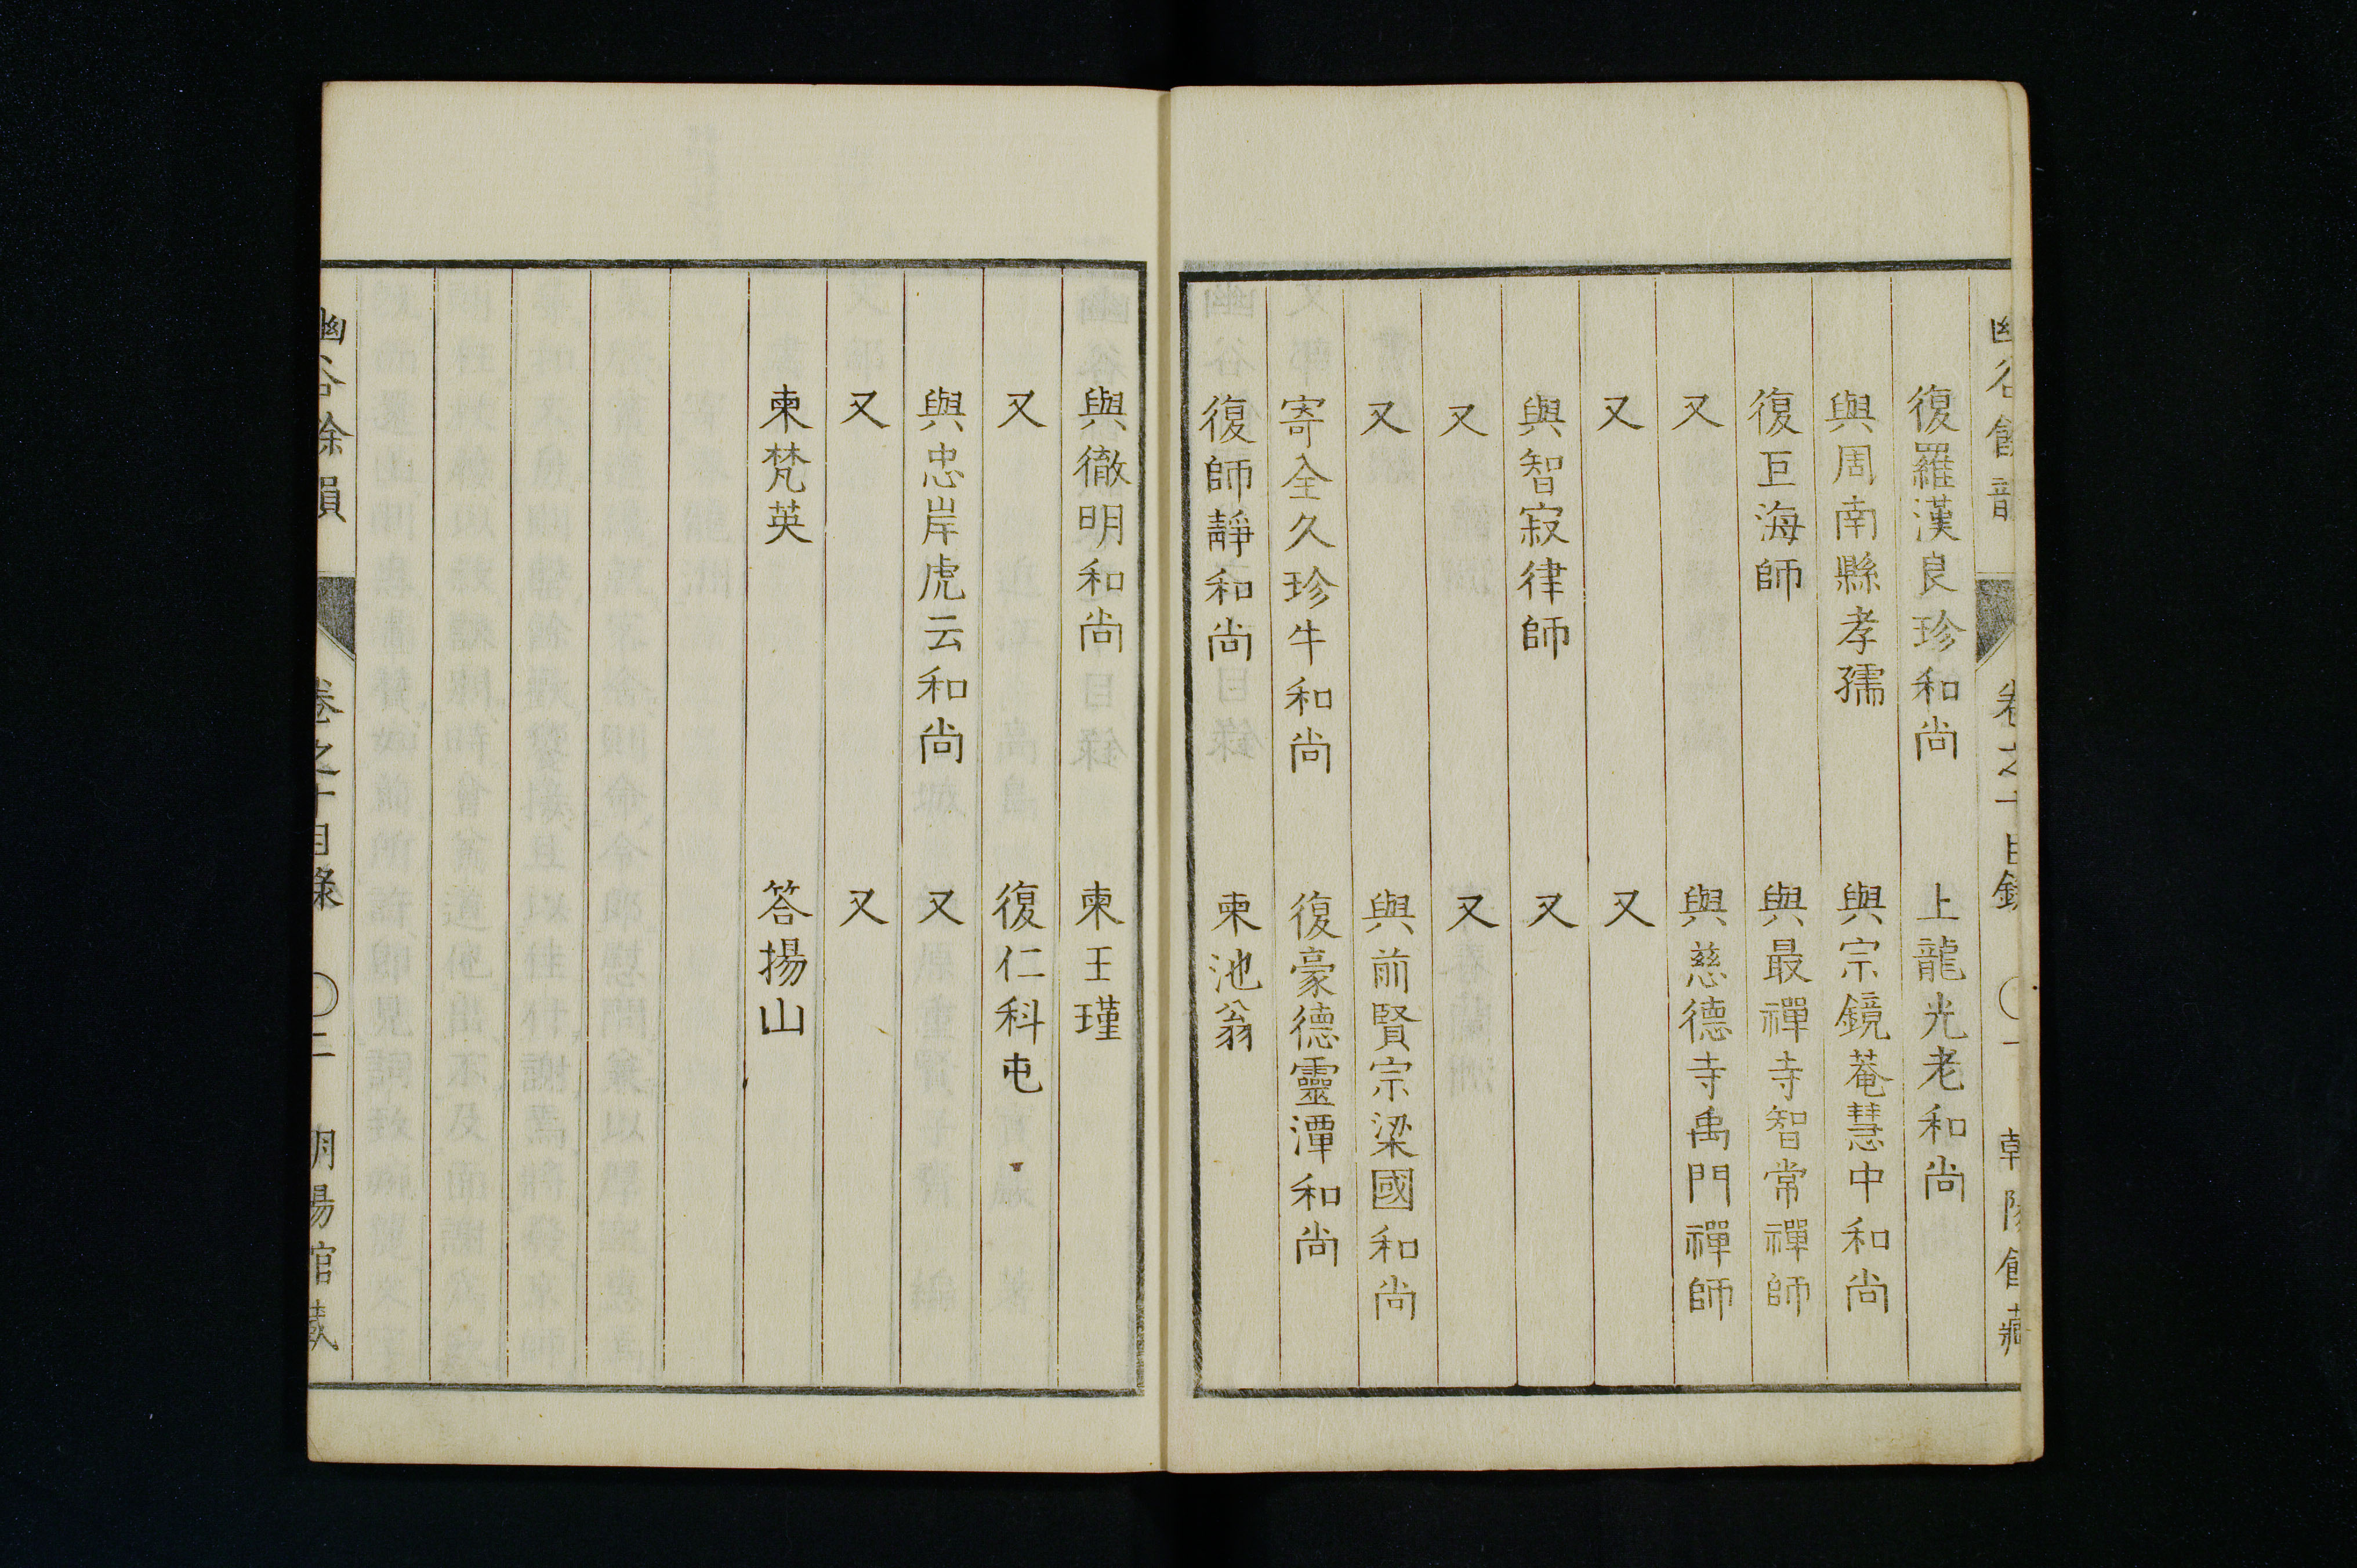 幽谷餘韻 卷之十目錄 一 朝陽館藏
復羅漢良珍和尚 上龍光老和尚
與周南縣孝孺 與宗鏡菴慧中和尚
復巨海師 與最禪寺智常禪師
又 與慈德寺禹門禪師
又 又
與智寂律師 又
又 又
又 與前賢宗梁國和尚
寄全久珍牛和尚 復豪德靈潭和尚
復師靜和尚 柬池翁
與徹明和尚 柬王瑾
又 復仁科屯
與忠岸虎云和尚 又
又 又
柬梵英 答揚山
幽谷餘韻 卷之十目錄 二 朝陽館藏